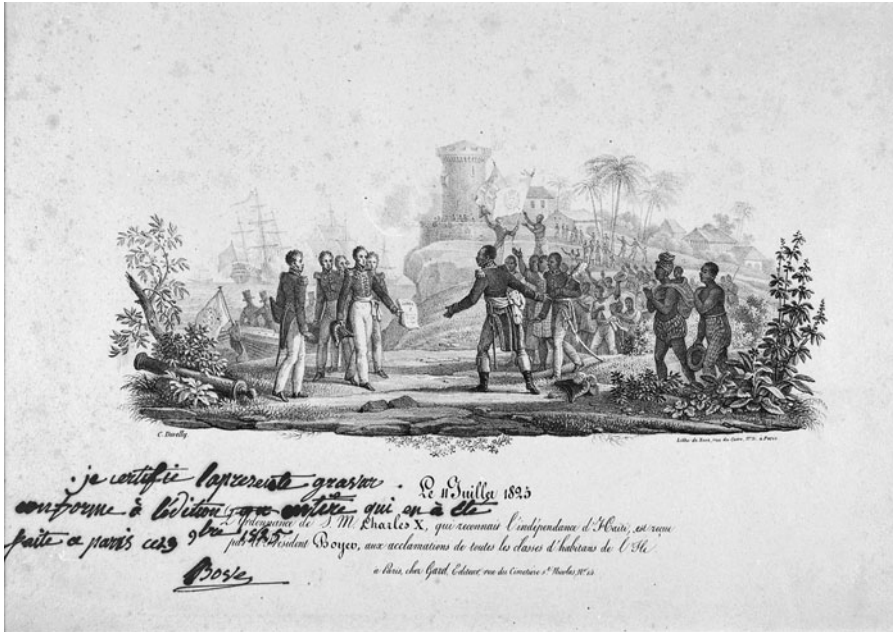 C. Develly
Litho de Bove, rue du Caire, Nº 8. a Paris
je certifie la presente gravur
conforme à l'édition entière qui en à été
faite a paris ce 9bre 1825
Bove
Le 11 Juillet 1825
L'Ordonnance de S. M. Charles X, qui reconnais l'indépendance d'Haïti, est reçue
par le Président Boyer, aux acclamations de toutes les classes d'habitans de l'Ile
a Paris, chez Gard, Editeur, rue du Cimetière St. Nicolas, Nº